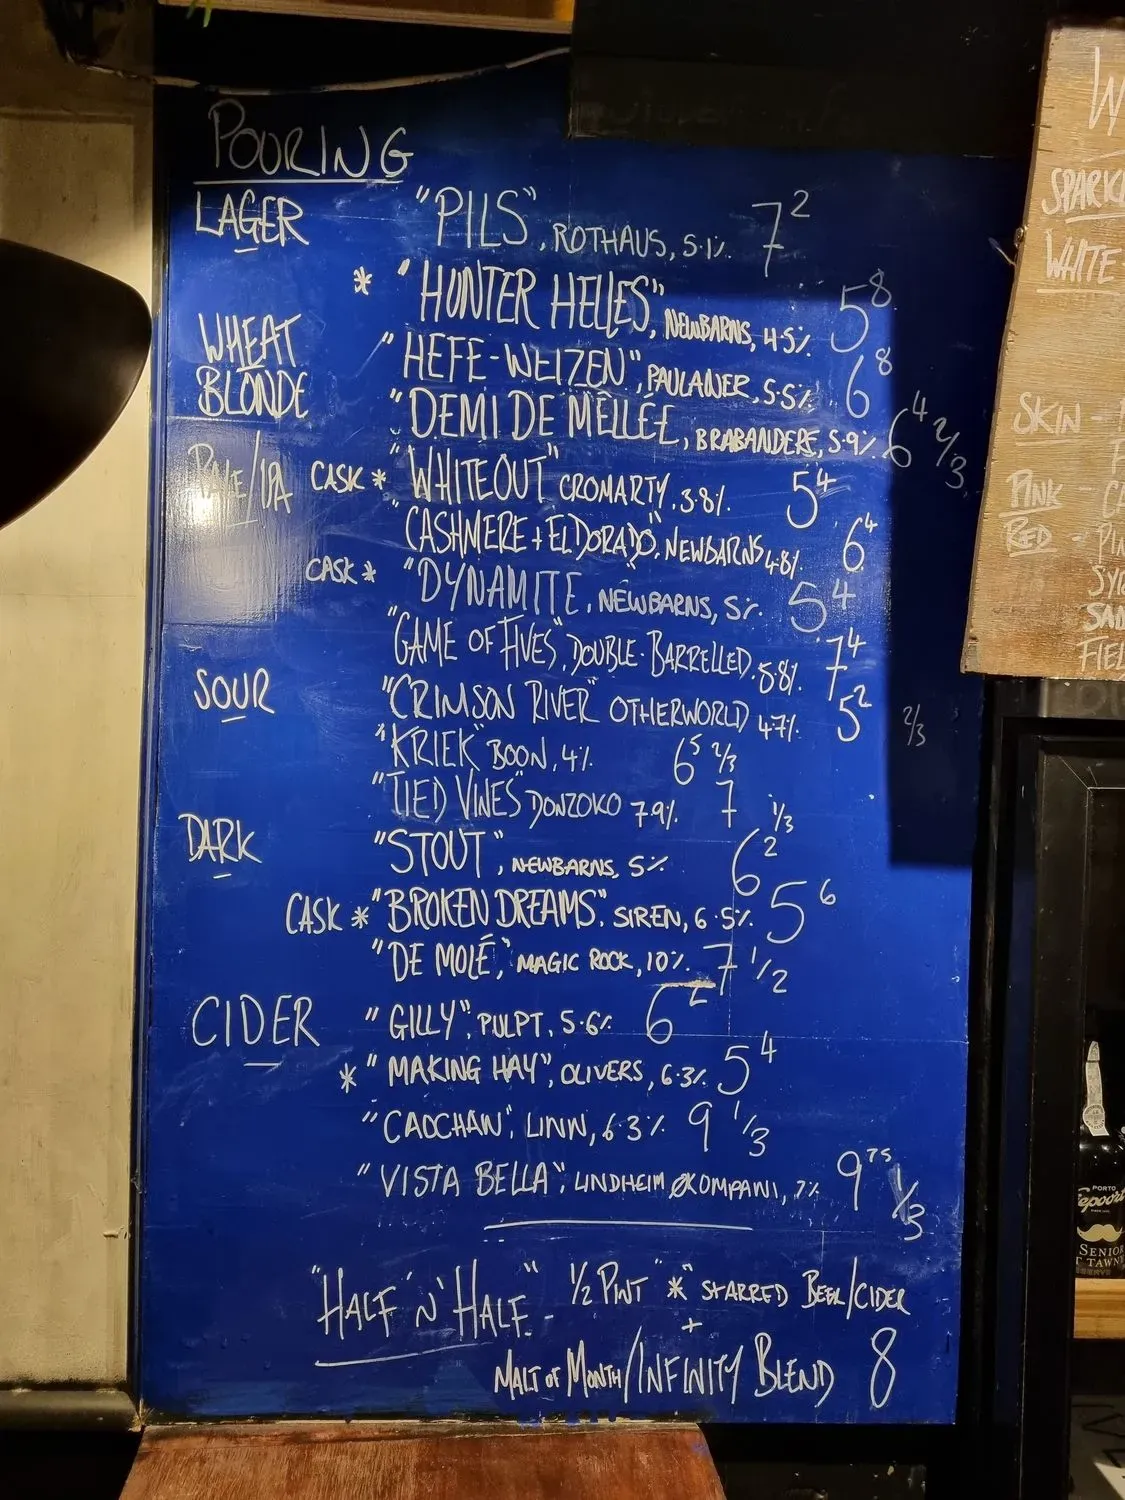 POURING
LAGER "PILS", ROTHAUS, 5.1% 7²
* "HUNTER HELLES", NEWBARNS, 4.5% 5⁸
WHEAT "HEFE-WEIZEN", PAULANER, 5.5% 6⁸
BLONDE "DEMI DE MÊLÉE, BRABANDERE, 5.9% 6⁴ 2/3
PALE/IPA CASK * "WHITEOUT" CROMARTY, 3.8% 5⁴
"CASHMERE + ELDORADO", NEWBARNS 4.8% 6⁴
CASK * "DYNAMITE, NEWBARNS, 5% 5⁴
"GAME OF FIVES", DOUBLE-BARRELLED, 5.8% 7⁴
SOUR "CRIMSON RIVER" OTHERWORLD 4.7% 5² 2/3
"KRIEK" BOON, 4% 6⁵ 2/3
"TIED VINES" DONZOKO 7.9% 7 1/3
DARK "STOUT", NEWBARNS, 5% 6²
CASK * "BROKEN DREAMS", SIREN, 6.5% 5⁶
"DE MOLÉ," MAGIC ROCK, 10% 7 1/2
CIDER "GILLY", PULPT, 5.6% 6²
* "MAKING HAY", OLIVERS, 6.3% 5⁴
"CAOCHAN", LINN, 6.3% 9 1/3
"VISTA BELLA", LINDHEIM ØKOMPANI, 7% 9⁷⁵ 1/3
"HALF 'N' HALF" - 1/2 PINT "*" STARRED BEER/CIDER
+
MALT OF MONTH/INFINITY BLEND 8
WHITE
SKIN -
PINK -
RED -
FIEL
PORTO
SENIOR
TAWN